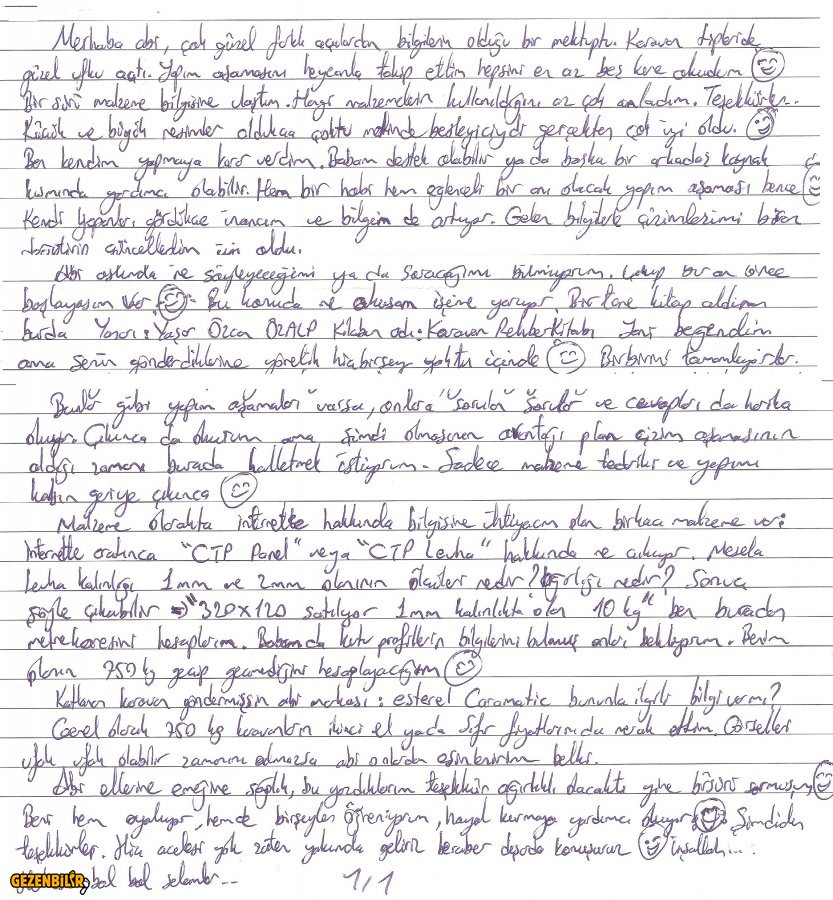 Merhaba abi, çok güzel farklı açılardan bilgilerin olduğu bir mektuptu. Karavan tipleride
güzel ufku açtı. Yapım aşamasını heycanla takip ettim hepsini en az beş kere okudum
Bir sürü malzeme bilgisine ulaştım. Hangi malzemelerin kullanıldığını az çok anladım. Teşekkürler.
Küçük ve büyük resimler oldukça çoktu besleyiciydi gerçekten çok iyi oldu.
Ben kendim yapmaya karar verdim. Babam destek olabilir ya da başka bir arkadaş kaynak
kısmında yardımcı olabilir. Hem bir hobi hem eğlenceli bir anı olacak yapım aşaması bence
Kendi yapanları gördükçe inancım ve bilgim de artıyor. Gelen bilgilerle çizimlerimi bütün
güncelledim iyi oldu.
Abi aslında ne söyleyeceğimi ya da soracağımı bilmiyorum. Çıkıp bir an önce
başlayasım var. Bu konuda ne okusam işime yarıyor. Bir tane kitap aldım
burda Yazarı: Yaşar Özcan ÖZALP Kitabın adı: Karavan Rehber Kitabı beğendim
ama senin gönderdiklerine yönelik hiçbirşey yoktu içinde Birbirini tamamlıyorlar.
Bunlar gibi yapım aşamaları varsa, onlara sorulan sorular ve cevapları da harika
oluyor. Çıkınca da okurum ama şimdi olmasının avantajı plan çizim aşamasının
aldığı zamanı burada halletmek istiyorum. Sadece malzeme tedariki ve yapımı
kalsın geriye çıkınca
Malzeme olarakta internette hakkında bilgisine ihtiyacım olan birkaç malzeme var:
İnternette aratınca "CTP Panel" veya "CTP Levha" hakkında ne çıkıyor. Mesela
Levha kalınlığı 1mm ve 2mm olanının ölçüleri nedir? Ağırlığı nedir? Sonuç
şöyle çıkabilir => "320x120 satılıyor 1mm kalınlıkta olan 10 kg" ben buradan
metrekaresini hesaplarım. Babam da kutu profillerin bilgilerini bulmuş onları bekliyorum. Benim
planın 750 kg geçip geçmediğini hesaplayacağım
Katlanan karavan göndermişsin abi markası: esterel Caramatic bununla ilgili bilgi var mı?
Genel olarak 750 kg karavanların ikinci el yada sıfır fiyatlarını da merak ettim. Görselleri
ufak ufak olabilir zamanını almazsa abi onlardan esinlenirim belki.
Abi ellerine emeğine sağlık, bu yazdıklarım teşekkür ağırlıklı olacaktı yine bir sürü
Beni hem oyalıyor, hemde birşeyler öğreniyorum, hayal kurmaya yardımcı oluyor Şimdiden
teşekkürler. Hiç acelesi yok zaten yakında gelirim beraber dışarda konuşuruz inşallah...
GEZENBİLİR bol bol selamlar...
1/1